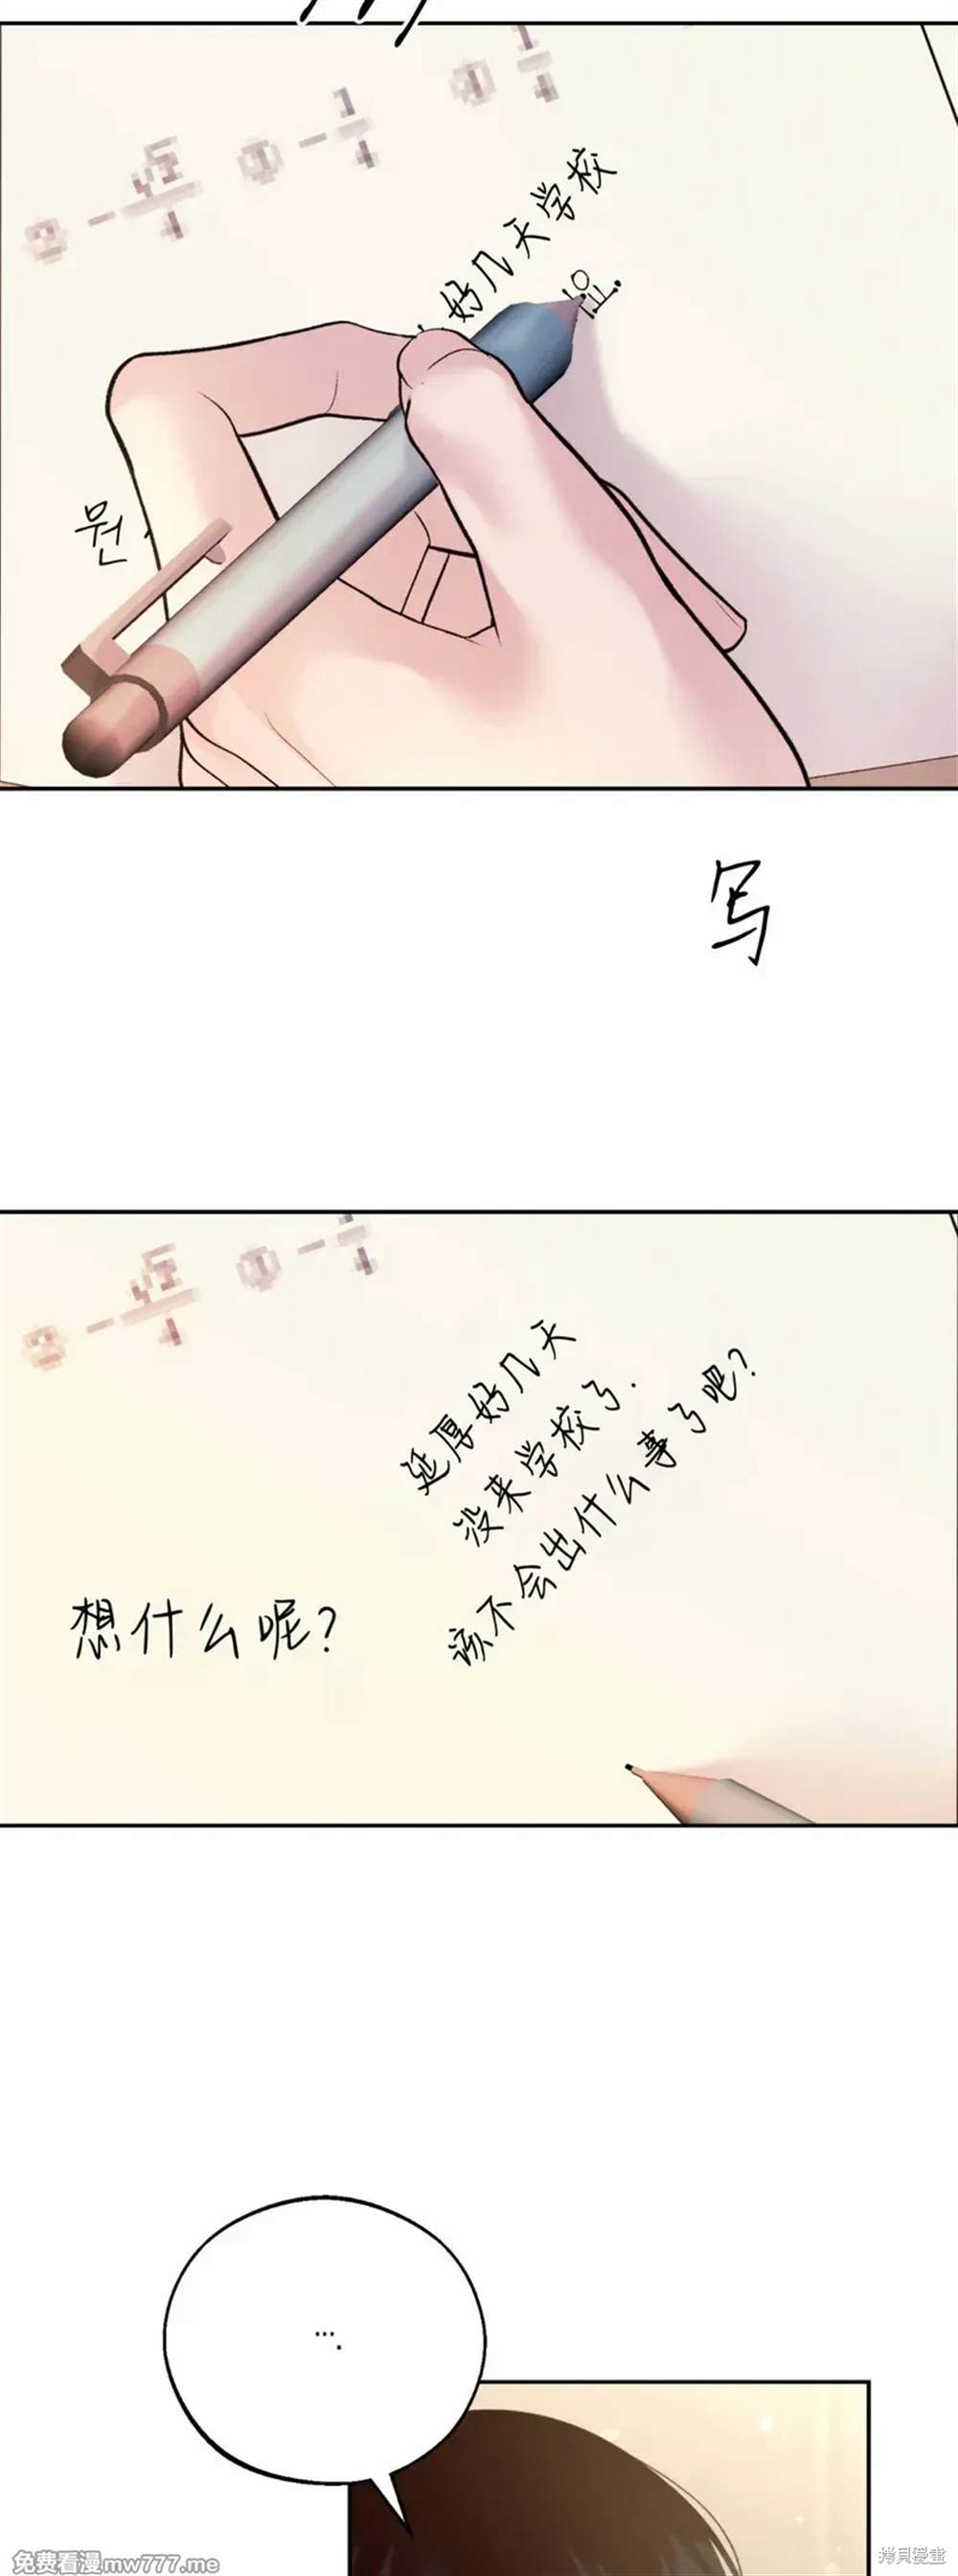 好几天学校
원
写
延厚好几天
没来学校了.
该不会出什么事了吧?
想什么呢?
….
免费看漫mw777.me
拷貝漫畫